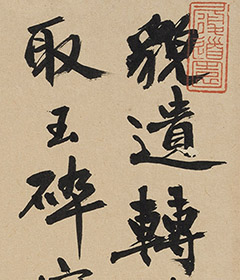 貌遺轉
取玉碎